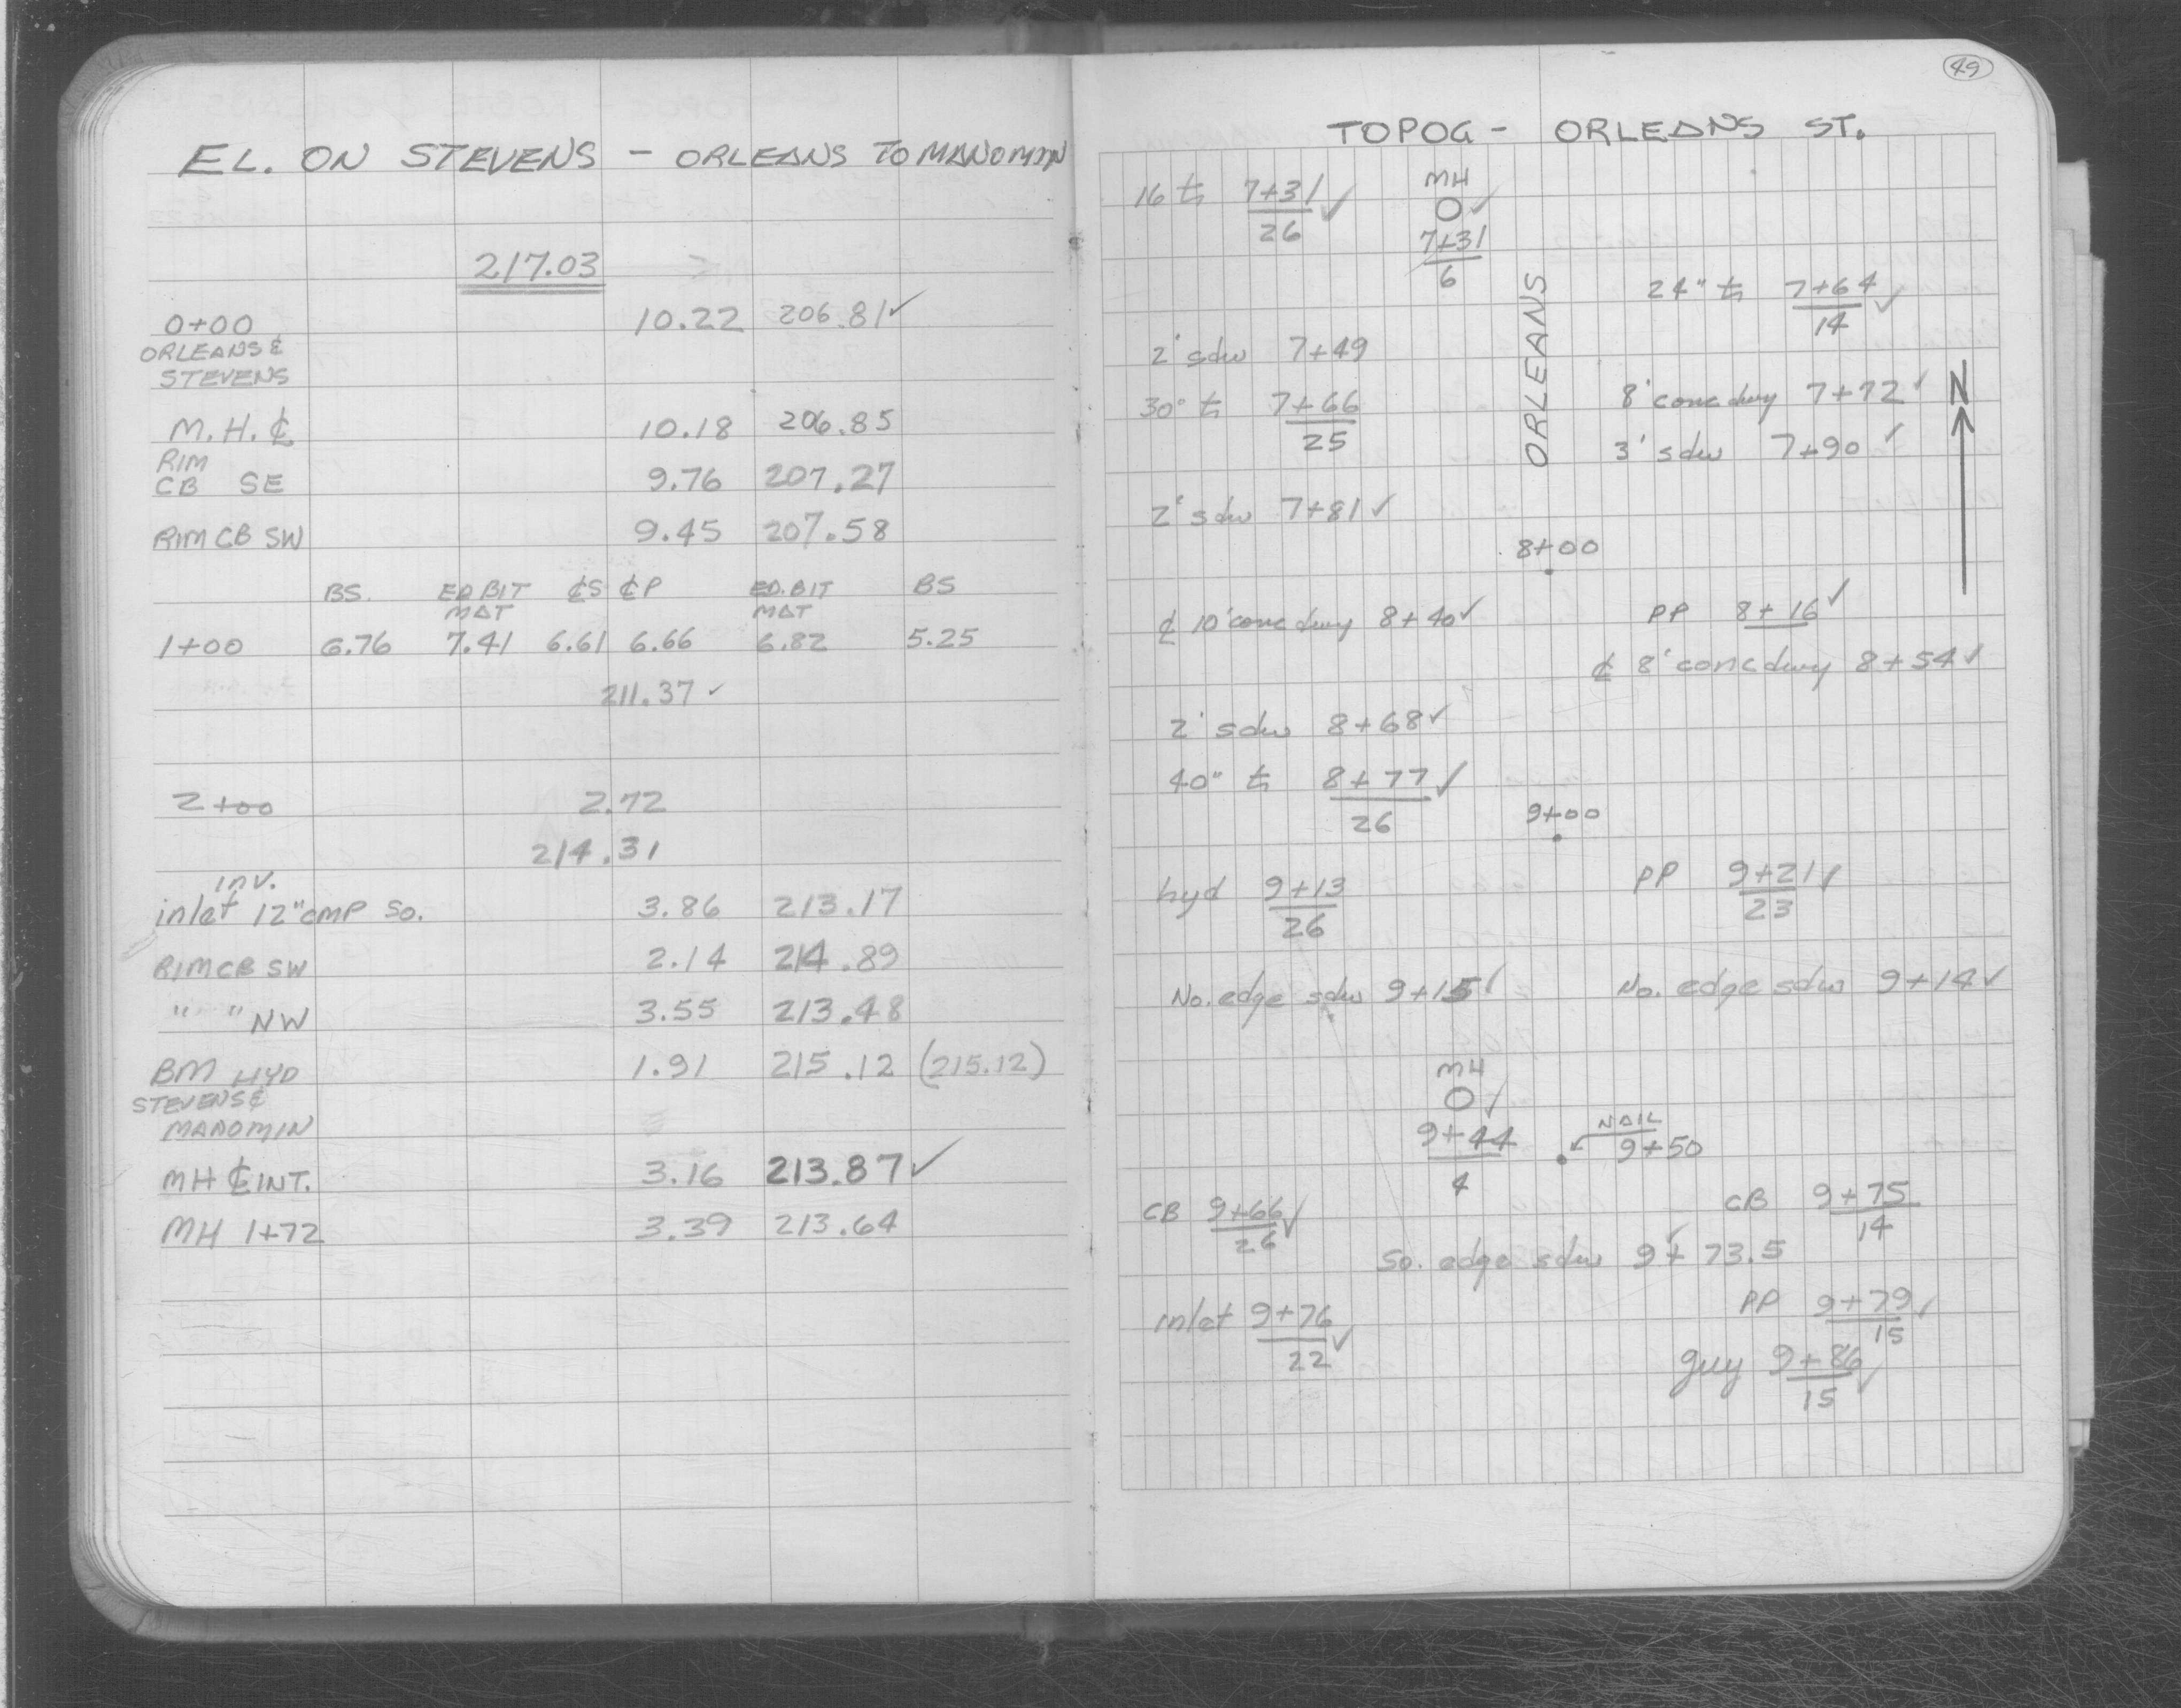 EL. ON STEVENS - ORLEANS TO MANOMIN
217.03
0+00 10.22 206.81✓
ORLEANS &
STEVENS
M.H. ℄ 10.18 206.85
RIM
CB SE 9.76 207.27
RIM CB SW 9.45 207.58
BS. ED BIT ℄S ℄P ED. BIT BS
MAT MAT
1+00 6.76 7.41 6.61 6.66 6.82 5.25
211.37 ✓
2+00 2.72
214.31
inv.
inlet 12" CMP So. 3.86 213.17
RIM CB SW 2.14 214.89
" " NW 3.55 213.48
BM HYD 1.91 215.12 (215.12)
STEVENS &
MANOMIN
MH ℄ INT. 3.16 213.87✓
MH 1+72 3.39 213.64
49
TOPOG - ORLEANS ST.
16 tr 7+31 ✓
26
MH
✓
7+31
6
ORLEANS
24" tr 7+64 ✓
14
2' sdw 7+49
30" tr 7+66
25
8' conc dwy 7+72 ✓
N
3' sdw 7+90 ✓
2' sdw 7+81 ✓
8+00
℄ 10' conc dwy 8+40✓
PP 8+16 ✓
℄ 8' conc dwy 8+54✓
2' sdw 8+68✓
40" tr 8+77 ✓
26
9+00
hyd 9+13
26
PP 9+21 ✓
23
No. edge sdw 9+15 ✓
No. edge sdw 9+14 ✓
MH
✓
9+44
4
NAIL
9+50
CB 9+66 ✓
26
CB 9+75
14
So. edge sdw 9+73.5 ✓
inlet 9+76 ✓
22
PP 9+79 ✓
15
guy 9+86 ✓
15